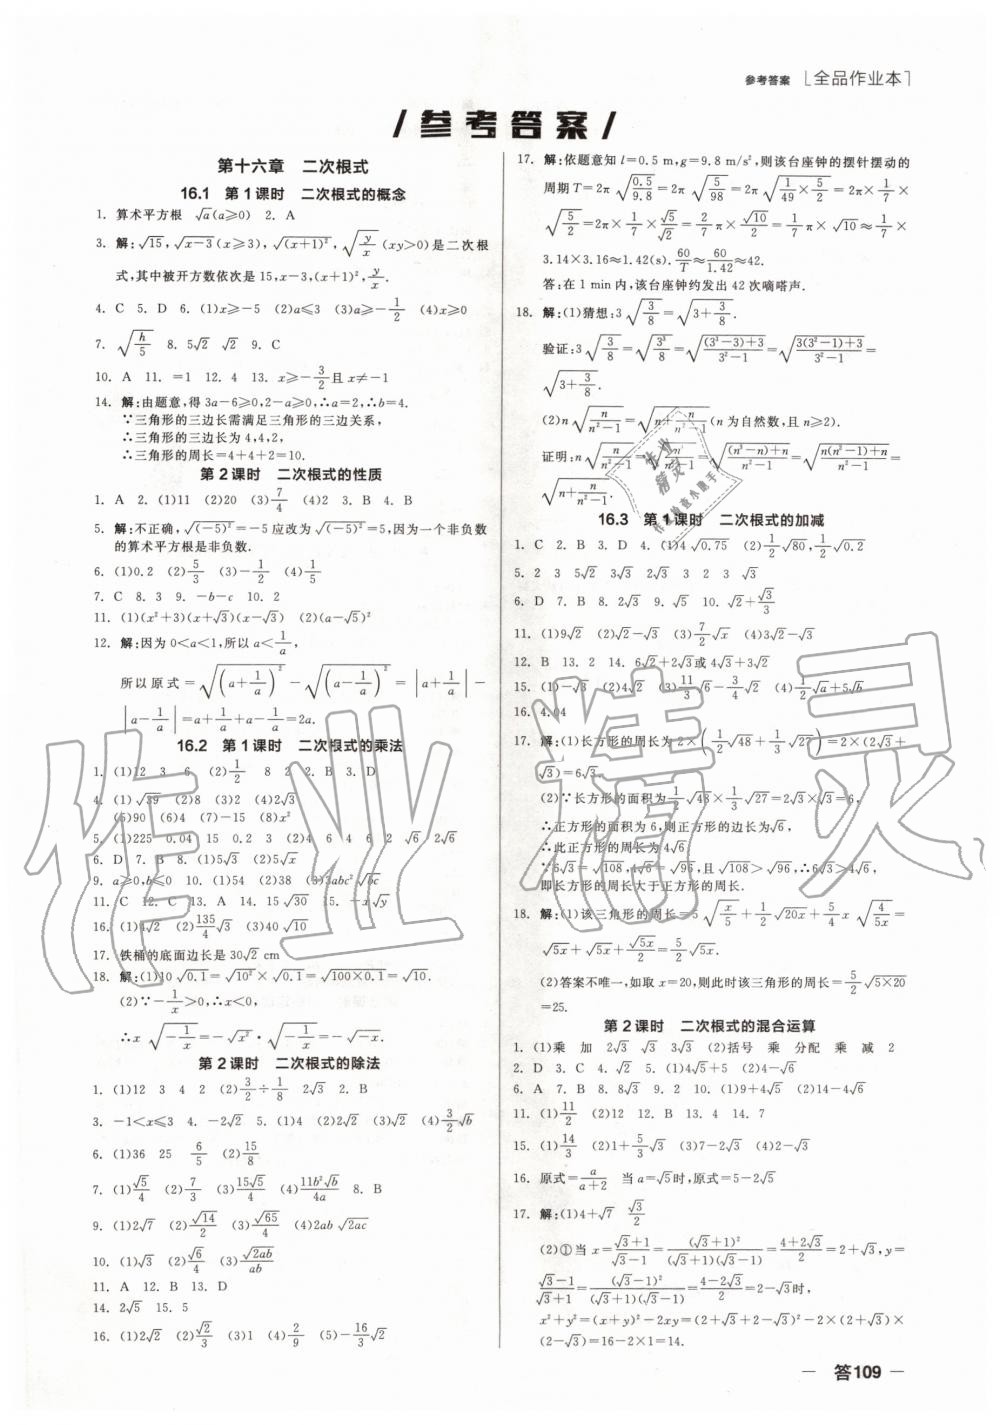 参考答案 [全品作业本]
/ 参考答案 /
第十六章 二次根式
16.1 第1课时 二次根式的概念
1. 算术平方根 √a(a≥0) 2. A
3. 解:√15,√(x-3)(x≥3),√((x+1)²),√(y/x)(xy>0)是二次根
式,其中被开方数依次是15,x-3,(x+1)²,y/x.
4. C 5. D 6. (1)x≥-5 (2)a≤3 (3)a≥-1/2 (4)x≥0
7. √(h/5) 8. 5√2 √2 9. C
10. A 11. =1 12. 4 13. x≥-3/2且x≠-1
14. 解:由题意,得3a-6≥0,2-a≥0,∴a=2,∴b=4.
∵三角形的三边长需满足三角形的三边关系,
∴三角形的三边长为4,4,2,
∴三角形的周长=4+4+2=10.
第2课时 二次根式的性质
1. A 2. (1)11 (2)20 (3)7/4 (4)2 3. B 4. B
5. 解:不正确,√((-5)²)=-5应改为√((-5)²)=5,因为一个非负数
的算术平方根是非负数.
6. (1)0.2 (2)5/3 (3)-1/2 (4)1/5
7. C 8. 3 9. -b-c 10. 2
11. (1)(x²+3)(x+√3)(x-√3) (2)(a-√5)²
12. 解:因为0<a<1,所以a<1/a,
所以原式=√((a+1/a)²)-√((a-1/a)²)=|a+1/a|-
|a-1/a|=a+1/a+a-1/a=2a.
16.2 第1课时 二次根式的乘法
1. (1)12 3 6 (2)1/2 8 2 2. B 3. D
4. (1)√39 (2)8 (3)2 (4)2√3
(5)90 (6)4 (7)-15 (8)x²
5. (1)225 0.04 15 0.2 3 (2)4 6 4 6 2 √6 2√6
6. D 7. B 8. (1)5√3 (2)5√x
9. a≥0,b≤0 10. (1)54 (2)38 (3)3abc²√bc
11. C 12. C 13. A 14. 15√30 15. -x√y
16. (1)4√2 (2)135/4√3 (3)40√10
17. 铁桶的底面边长是30√2 cm
18. 解:(1)10√0.1=√10²×√0.1=√(100×0.1)=√10.
(2)∵-1/x>0,∴x<0,
∴x√(-1/x)=-√x²·√(-1/x)=-√-x.
第2课时 二次根式的除法
1. (1)12 3 4 2 (2)3/2÷1/8 2√3 2. B
3. -1<x≤3 4. -2√2 5. (1)4 (2)2√2 (3)√2 (4)3/2√b
6. (1)36 25 6/5 (2)15/8
7. (1)√5/4 (2)7/3 (3)15√5/4 (4)11b²√b/4a 8. B
9. (1)2√7 (2)√14/2 (3)√65/4 (4)2ab√2ac
10. (1)√3 (2)√6/4 (3)√2ab/ab
11. A 12. B 13. D
14. 2√5 15. 5
16. (1)2√2 (2)√2/3 (3)1 (4)2/9 (5)-16/3√2
17. 解:依题意知l=0.5 m,g=9.8 m/s²,则该台座钟的摆针摆动的
周期T=2π√(0.5/9.8)=2π√(5/98)=2π√(1/49×5/2)=2π×1/7×
√(5/2)=2π×1/7×√5/√2=2/7π×√10/2=1/7π×√10≈1/7×
3.14×3.16≈1.42(s). 60/T≈60/1.42≈42.
答:在1 min内,该台座钟约发出42次嘀嗒声.
18. 解:(1)猜想:3√(3/8)=√(3+3/8).
验证:3√(3/8)=√(3³/8)=√(((3³-3)+3)/(3²-1))=√((3(3²-1)+3)/(3²-1))=
√(3+3/8).
(2)n√(n/(n²-1))=√(n+n/(n²-1))(n为自然数,且n≥2).
证明:n√(n/(n²-1))=√(n³/(n²-1))=√(((n³-n)+n)/(n²-1))=√((n(n²-1)+n)/(n²-1))=
√(n+n/(n²-1)).
16.3 第1课时 二次根式的加减
1. C 2. B 3. D 4. (1)4√0.75 (2)1/2√80,1/2√0.2
5. 2 3 5√2 3√3 2√3 3 2 3 √3
6. D 7. B 8. 2√3 9. √5 10. √2+√3/3
11. (1)9√2 (2)√2-√3 (3)7/2√x (4)3√2-√3
12. B 13. 2 14. 6√2+2√3或4√3+3√2
15. (1)-√3 (2)4√2 (3)11/3√6-3/4√2 (4)1/2√a+5√b
16. 4.04
17. 解:(1)长方形的周长为2×(1/2√48+1/3√27)=2×(2√3+
√3)=6√3.
(2)∵长方形的面积为1/2√48×1/3√27=2√3×√3=6,
∴正方形的面积为6,则正方形的边长为√6,
∴此正方形的周长为4√6.
∵6√3=√108,4√6=√96,且√108>√96,∴6√3>4√6,
即长方形的周长大于正方形的周长.
18. 解:(1)该三角形的周长=5√(x/5)+1/2√20x+5/4x√(4/5x)=
√5x+√5x+√5x/2=5/2√5x.
(2)答案不唯一,如取x=20,则此时该三角形的周长=5/2√(5×20)
=25.
第2课时 二次根式的混合运算
1. (1)乘 加 2√3 √3 3√3 (2)括号 乘 分配 乘 减 2
2. D 3. C 4. √2 5. (1)4√5+5 (2)4-√6
6. A 7. B 8. 8√3 9. 2 10. (1)9+4√5 (2)14-4√6
11. (1)11/2 (2)12 12. B 13. 4 14. 7
15. (1)14/3 (2)1+5/3√3 (3)7-2√3 (4)2-√3
16. 原式=a/(a+2) 当a=√5时,原式=5-2√5
17. 解:(1)4+√7 √3/2
(2)①当x=(√3+1)/(√3-1)=(√3+1)²/((√3+1)(√3-1))=(4+2√3)/2=2+√3,y=
(√3-1)/(√3+1)=(√3-1)²/((√3+1)(√3-1))=(4-2√3)/2=2-√3时,
x²+y²=(x+y)²-2xy=(2+√3+2-√3)²-2(2+√3)×
(2-√3)=16-2×1=14.
— 答109 —
作业精灵
作业
精灵